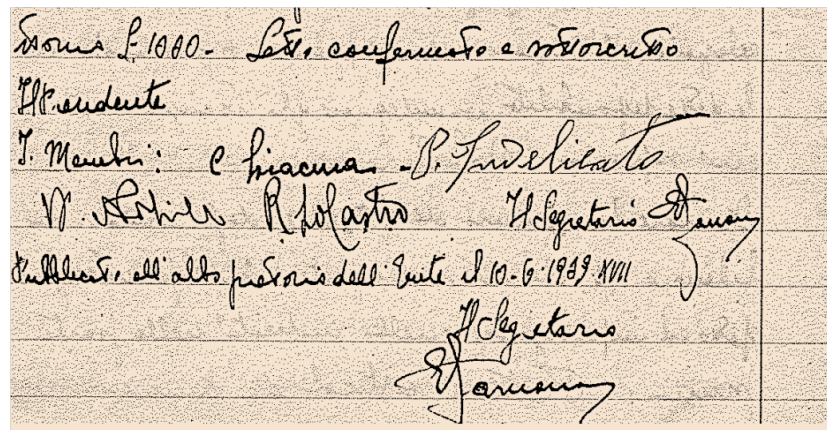 £ 1000 - Letto confermato e sottoscritto
Il Presidente
I Membri: P. Indelicato
R. Lo Castro Il Segretario
Pubblicato all'albo pretorio dell'Ente il 10-6-1939 XVII
Il Segretario